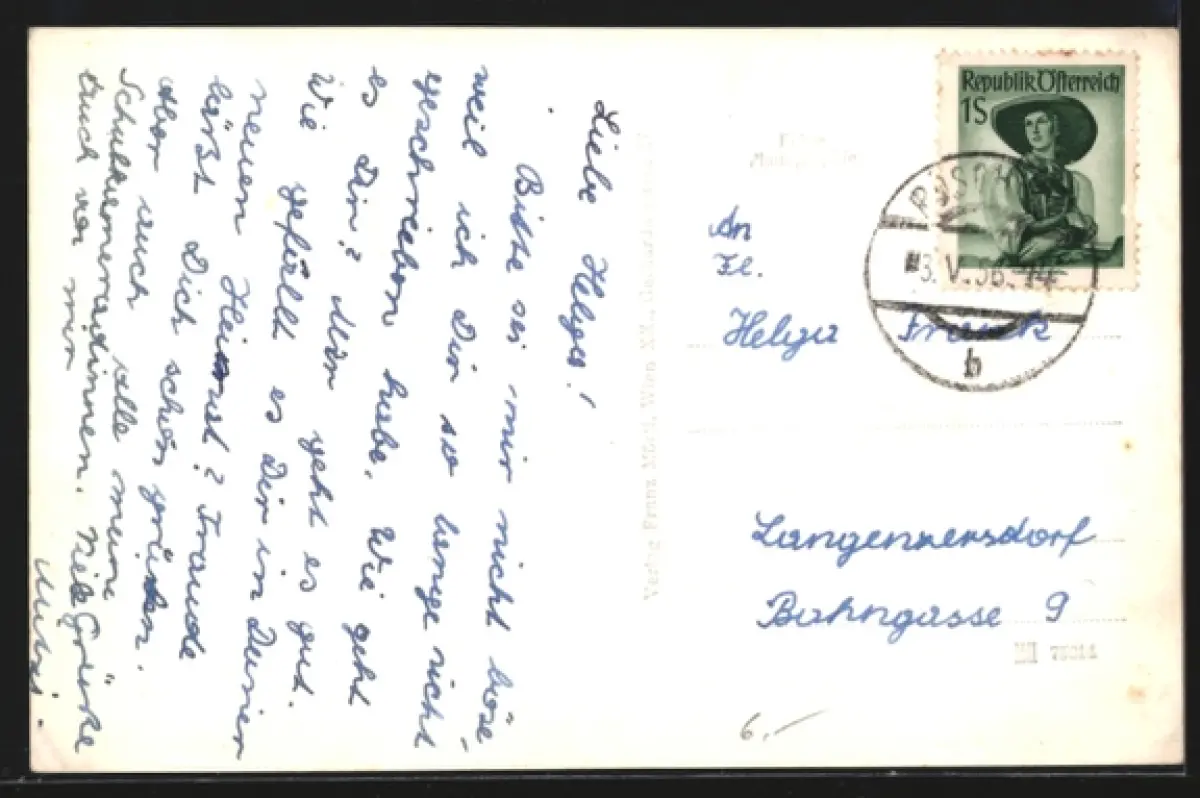 Liebe Helga!
Bitte sei mir nicht böse
weil ich Dir so lange nicht
geschrieben habe. Wie geht
es Dir? Mir geht es gut.
Wie gefällt es Dir in Deiner
neuen Heimat? Traude
läßt Dich schön grüßen.
Aber auch alle meine
Schulkameradinnen. Viele Grüße
auch von mir
Mitzi.
Verlag Franz Mörtl, Wien XX.,
Republik Österreich
1S
3.V.56.-14
b
An
Frl.
Helga Franck
Langenzersdorf
Bahngasse 9
6,-